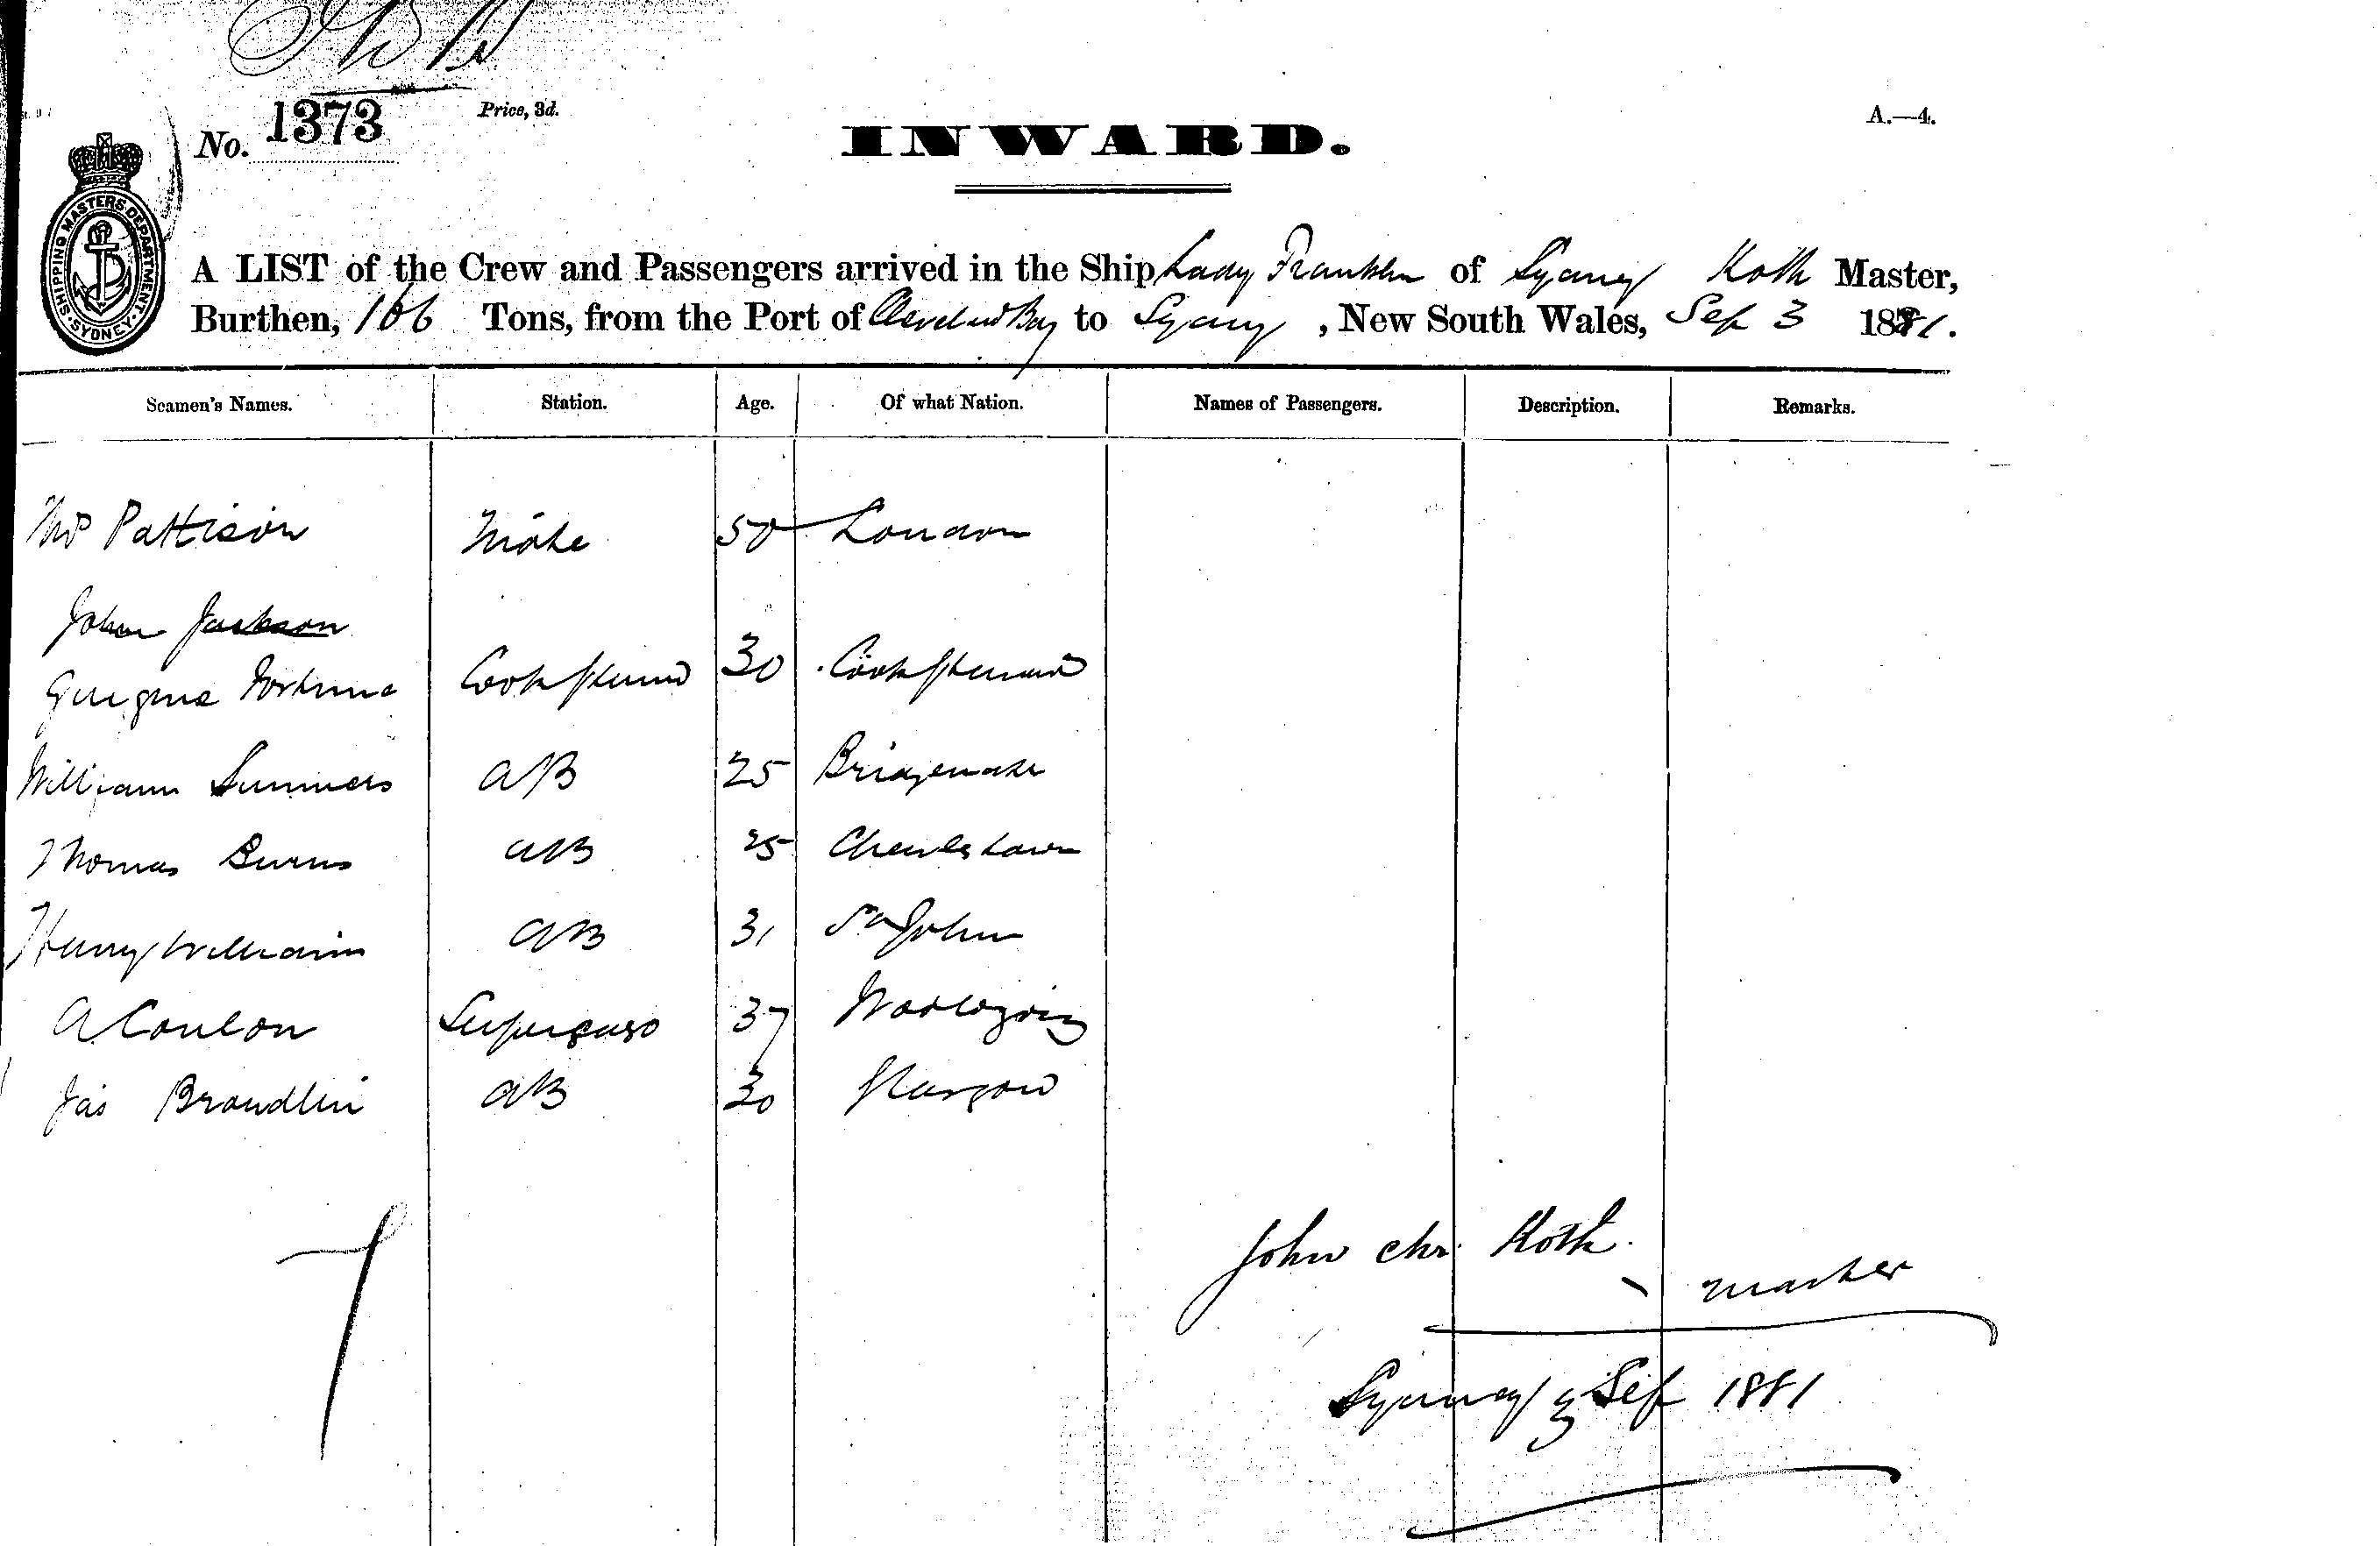 No. 1373
Price, 3d.
INWARD.
A.—4.
SHIPPING MASTERS DEPARTMENT · SYDNEY ·
A LIST of the Crew and Passengers arrived in the Ship Lady Franklin of Sydney Koth Master,
Burthen, 166 Tons, from the Port of Cleveland Bay to Sydney, New South Wales, Sep 3 1881.
Seamen's Names. Station. Age. Of what Nation. Names of Passengers. Description. Remarks.
Pattison Mate 50 London
John Jackson
Fortune Cook Steward 30 Cook Steward
William Summers AB 25 Bridgewater
Thomas Burns AB 25 Charlestown
Henry William AB 31 St John
A Coulon Supercargo 37
Jas Broudlin AB 30 Glasgow
7
John Chr. Koth.
Master
Sydney 3 Sep 1881